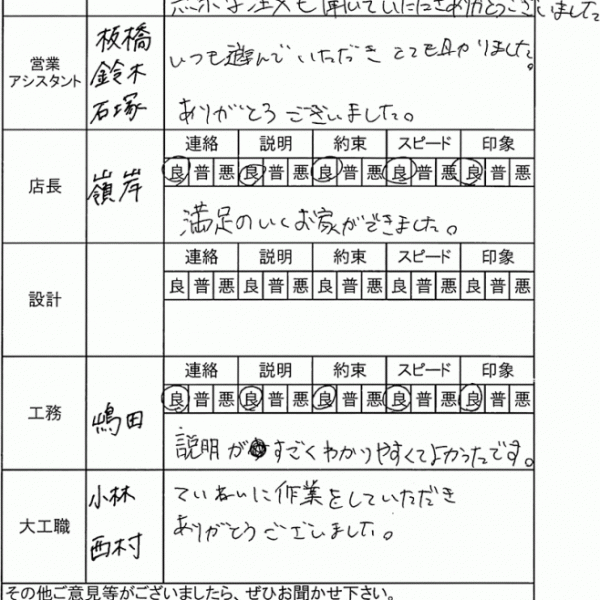 注文も聞いていただきありがとうございました
営業
アシスタント
板橋
鈴木
石塚
いつも遊んでいただき とても助かりました。
ありがとうございました。
店長
嶺岸
連絡 説明 約束 スピード 印象
良 普 悪 良 普 悪 良 普 悪 良 普 悪 良 普 悪
満足のいくお家ができました。
設計
連絡 説明 約束 スピード 印象
良 普 悪 良 普 悪 良 普 悪 良 普 悪 良 普 悪
工務
嶋田
連絡 説明 約束 スピード 印象
良 普 悪 良 普 悪 良 普 悪 良 普 悪 良 普 悪
説明がすごくわかりやすくてよかったです。
大工職
小林
西村
ていねいに作業をしていただき
ありがとうございました。
その他ご意見等がございましたら、ぜひお聞かせ下さい。